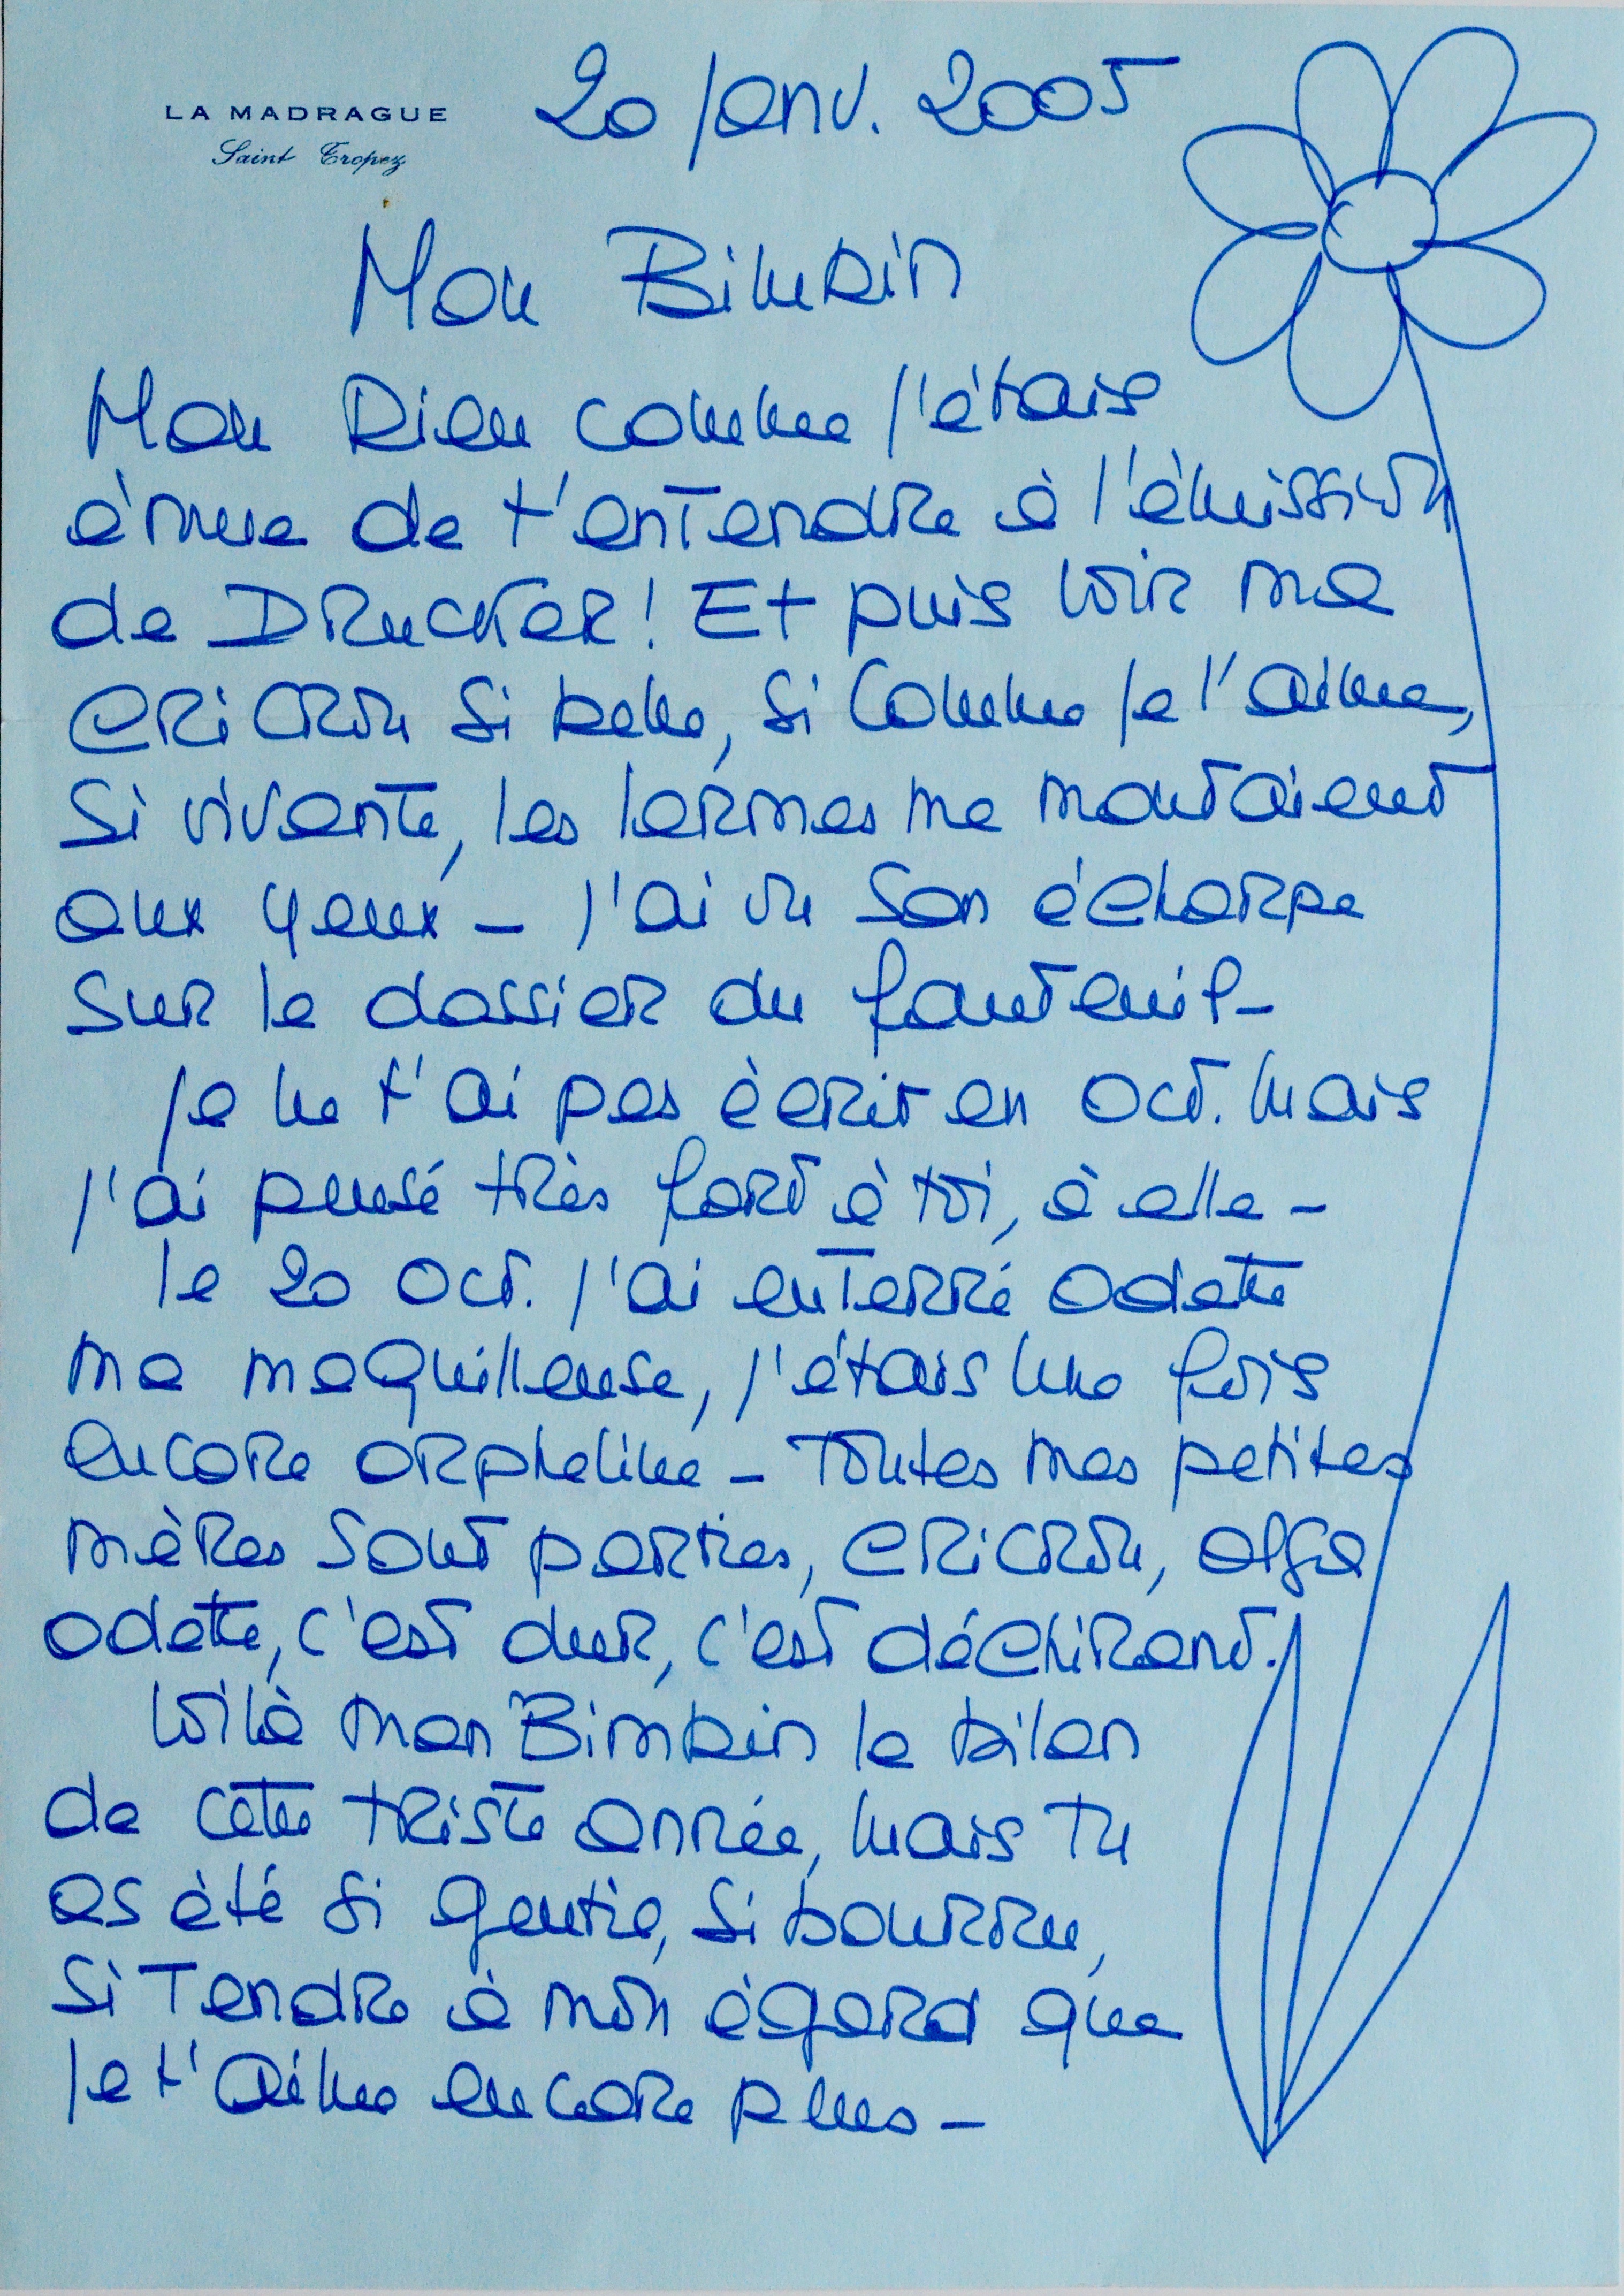 LA MADRAGUE
Saint Tropez
20 Janv. 2005
Mon Bimbin
Mon Dieu comme j'étais
émue de t'entendre à l'émission
de DRucker! Et puis voir ma
cricRon si belle, si comme je l'aime,
si vivante, les larmes me montaient
aux yeux – j'ai vu son écharpe
sur le dossier du fauteuil –
je ne t'ai pas écrit en oct. mais
j'ai pensé très fort à toi, à elle –
le 20 oct. j'ai enterré odette
ma maquilleuse, j'étais une fois
encore orpheline – Toutes mes petites
mères sont parties, cricRon, olga
odette, c'est dur, c'est déchirant.
Voilà mon Bimbin le bilan
de cette triste année, mais Tu
as été si gentil, si bourru,
si Tendre à mon égard que
je t'aime encore plus –